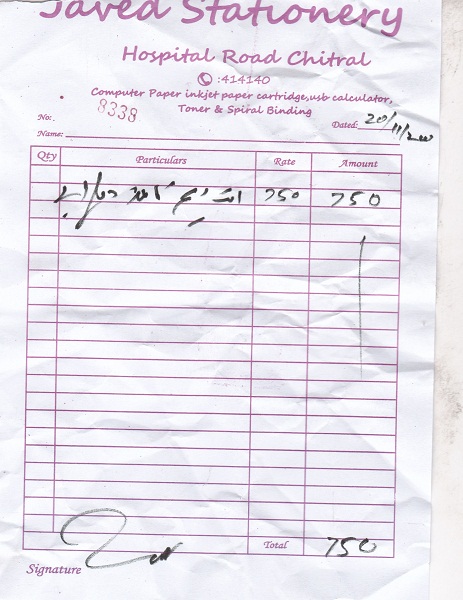 Javed Stationery
Hospital Road Chitral
:414140
Computer Paper inkjet paper cartridge,usb calculator,
Toner & Spiral Binding
No:. 8339
Dated: 20/11/200
Name:
Qty Particulars Rate Amount
750 750
Total 750
Signature